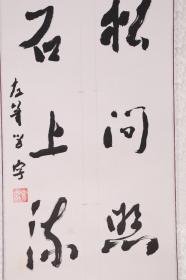 松间照
石上流
左笔学字